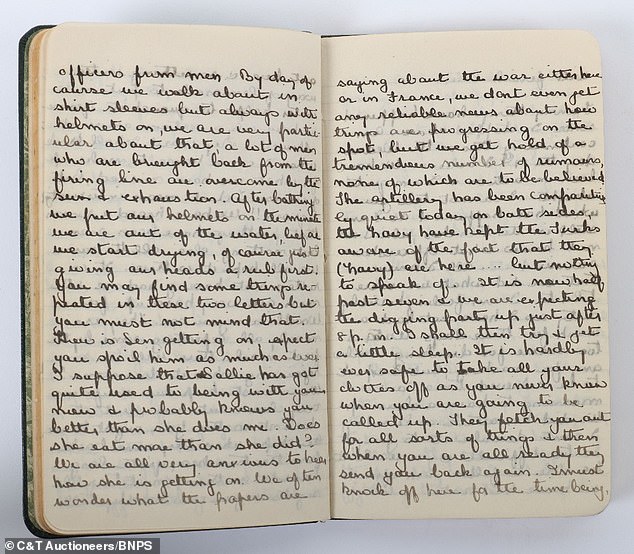 officers from men. By day of
course we walk about in
shirt sleeves but always with
helmets on, we are very partic-
ular about that, a lot of men
who are brought back from the
firing line are overcome by the
sun & exhaustion. After bathing
we put our helmets on the minute
we are out of the water, before
we start drying, of course just
giving our heads a rub first.
You may find some things re-
peated in these two letters but
you must not mind that.
How is Len getting on expect
you spoil him as much as ever
I suppose that Sallie has got
quite used to being with you
now & probably knows you
better than she does me. Does
she eat more than she did?
We are all very anxious to hear
how she is getting on. We often
wonder what the papers are
saying about the war either here
or in France, we dont even get
any reliable news about how
things are progressing on the
spot, but we get hold of a
tremendous number of rumours,
none of which are to be believed
The artillery has been comparative
ly quiet today on both sides,
the navy have kept the Turks
aware of the fact that they
(navy) are here ... but nothing
to speak of. It is now half
past seven & we are expecting
the digging party up just after
8 p.m. I shall then try & get
a little sleep. It is hardly
ever safe to take all your
clothes off as you never know
when you are going to be
called up. They fetch you out
for all sorts of things & then
when you are all ready they
send you back again. I must
knock off here for the time being.
© C&T Auctioneers/BNPS